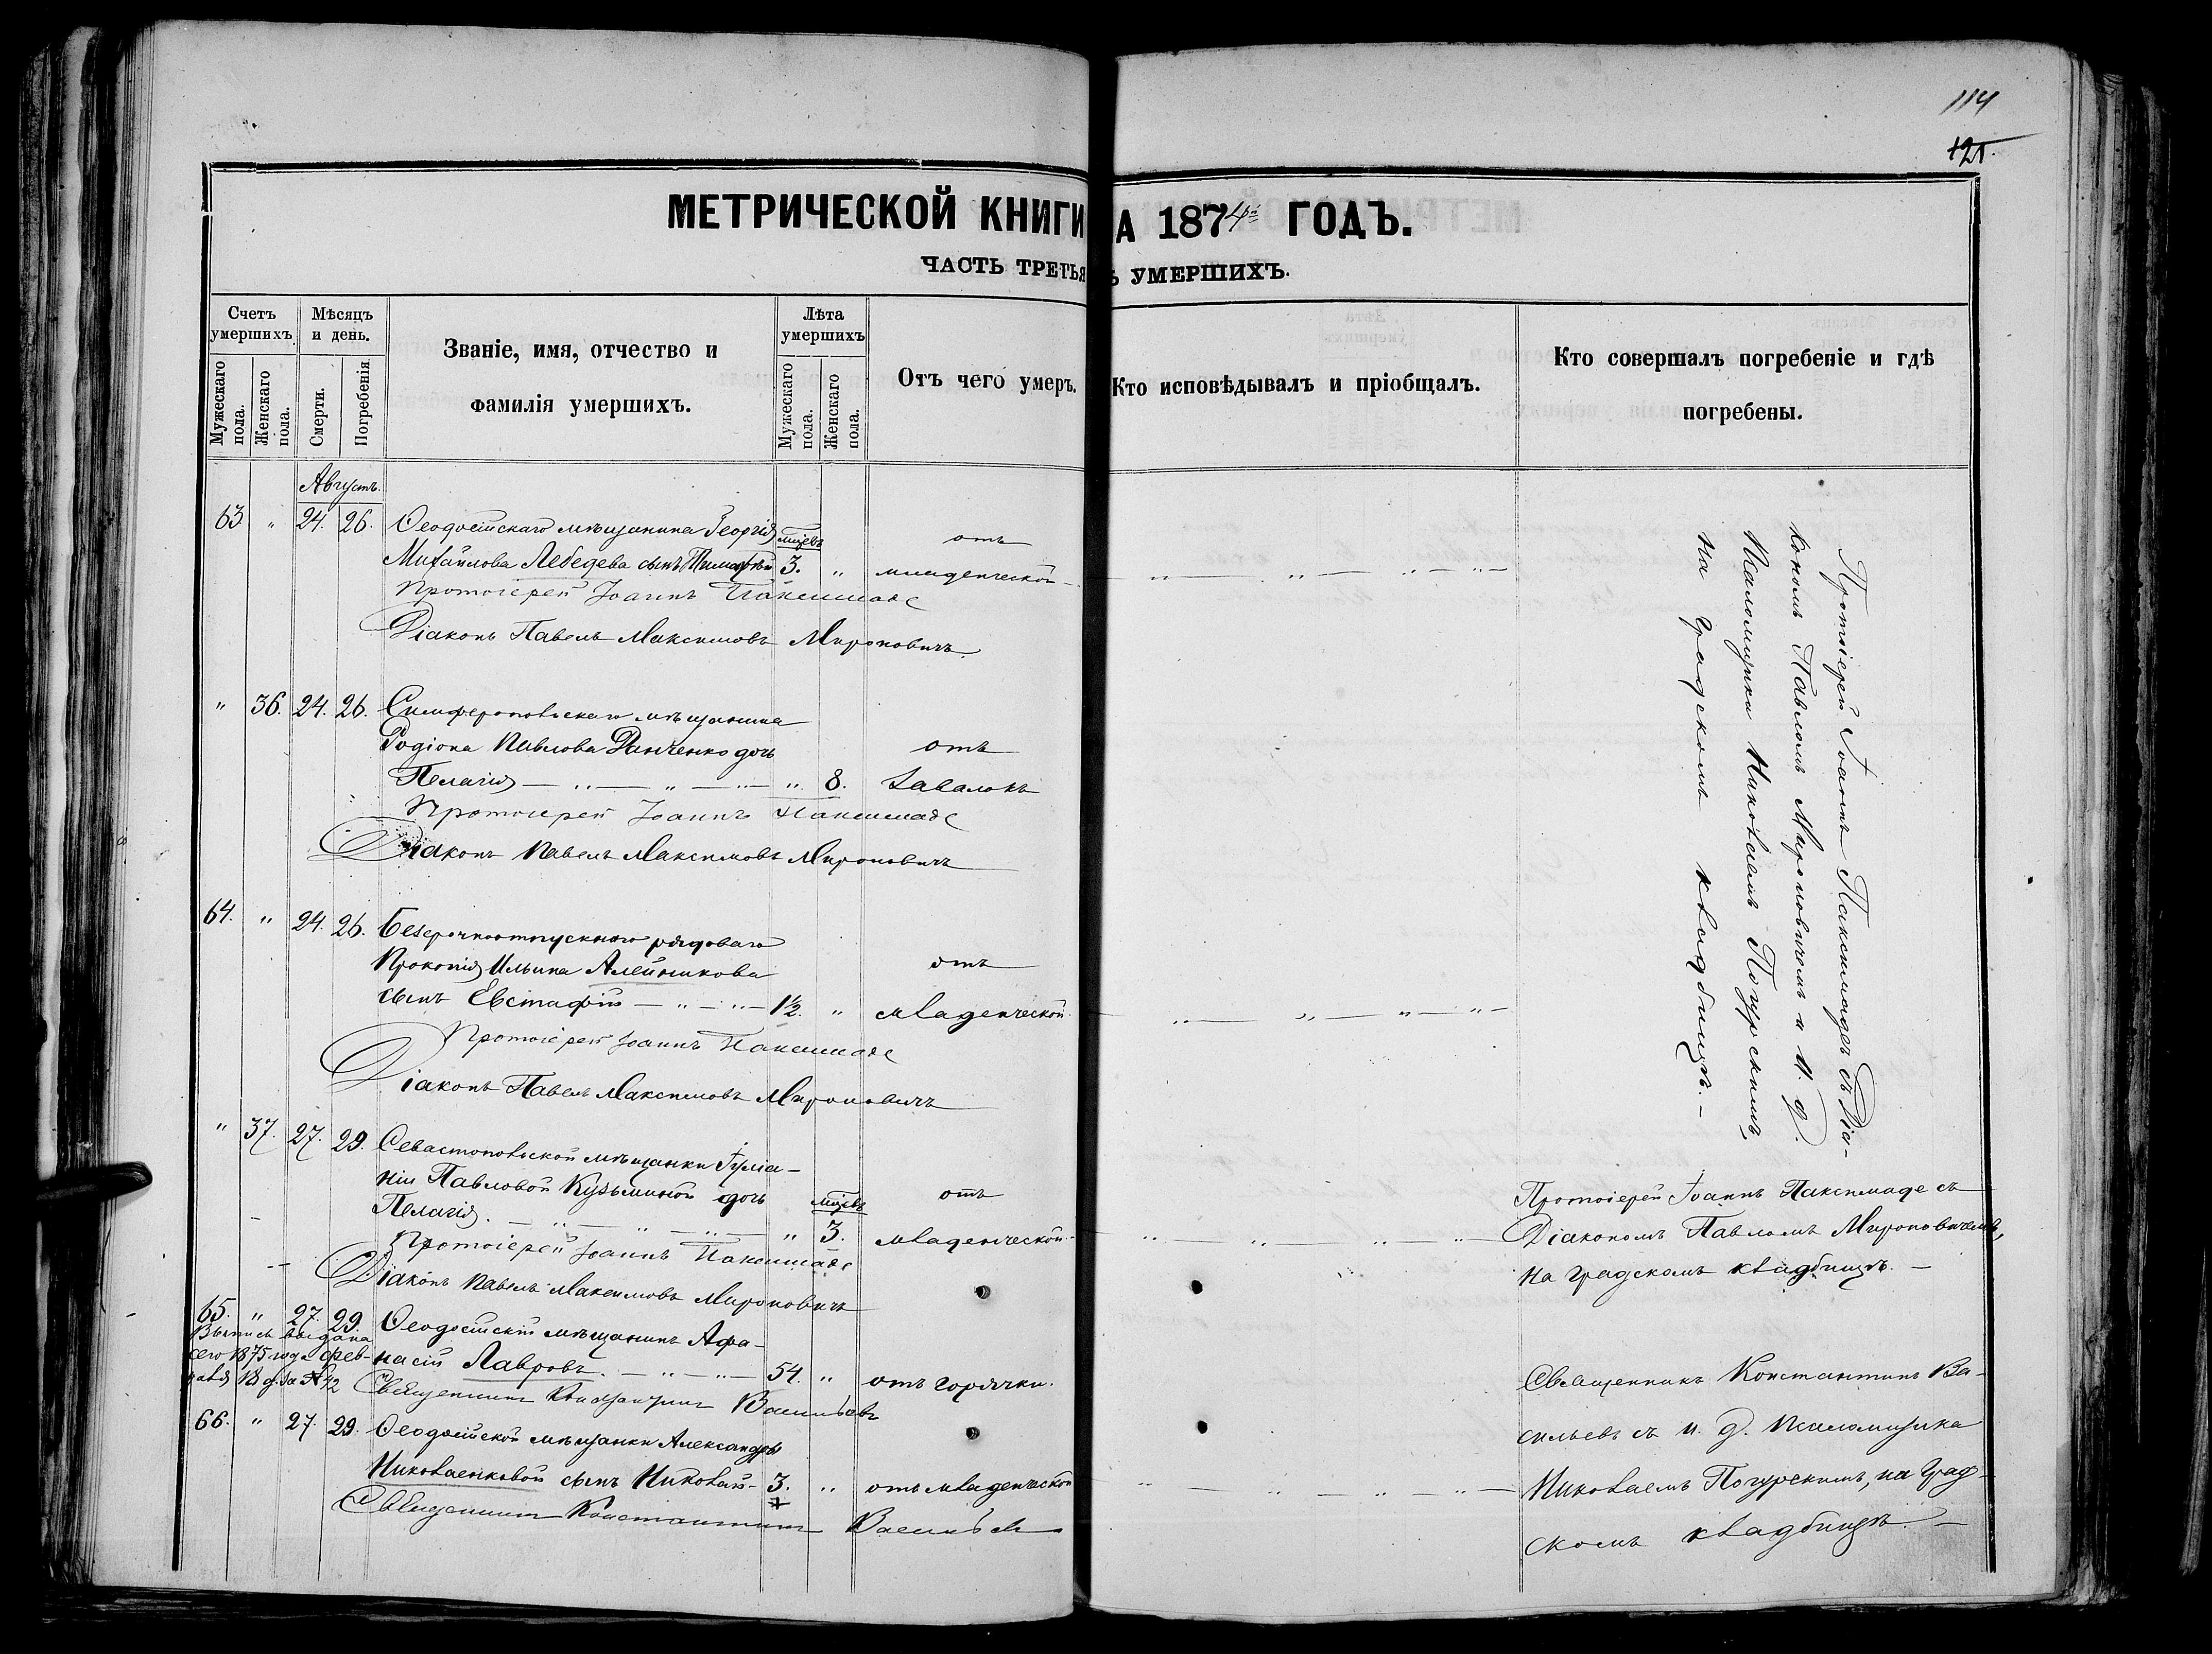 114
121.
МЕТРИЧЕСКОЙ КНИГИ
А 1874й ГОДЪ.
ЧАСТЬ ТРЕТЬЯ
Ъ УМЕРШИХЪ.
Счетъ умершихъ.
Мужескаго пола.
Женскаго пола.
Мѣсяцъ и день.
Смерти.
Погребенія
Званіе, имя, отчество и
фамилія умершихъ.
Лѣта умершихъ
Мужескаго пола.
Женскаго пола.
Отъ чего умеръ.
Кто исповѣдывалъ и пріобщалъ.
Кто совершалъ погребеніе и гдѣ
погребены.
Августъ.
63 " 24. 26. Ѳеодосійскаго мѣщанина Георгія мѣсцевъ отъ
Михайлова Лебедева сынъ Тимофей 3. " младенческой
Протоіерей Іоаннъ Паксимаде
Діаконъ Павелъ Максимовъ Мироновичъ.
" 36. 24. 26. Симферопольскаго мѣщанина
Родіона Павлова Данченко дочь отъ
Пелагія " 8. Завалокъ
Протоіерей Іоаннъ Паксимаде
Діаконъ Павелъ Максимовъ Мироновичъ
64. " 24. 26. Безсрочноотпускного рядоваго
Прокопія Ильина Алейникова отъ
сынъ Евстафій 1½. " младенческой
Протоіерей Іоаннъ Паксимаде
Діаконъ Павелъ Максимовъ Мироновичъ
Протоіерей Іоаннъ Паксимаде съ Діа-
кономъ Павломъ Мироновичемъ и И. д.
Псаломщика Николаемъ Погурскимъ,
на градскомъ кладбищѣ.
" 37. 27. 29. Севастопольской мѣщанки Іуліа-
ніи Павловой Кузьминой дочь мѣсцевъ отъ
Пелагія. " 3. младенческой
Протоіерей Іоаннъ Паксимаде
Діаконъ Павелъ Максимовъ Мироновичъ
Протоіерей Іоаннъ Паксимаде съ
Діакономъ Павломъ Мироновичемъ,
на градскомъ кладбищѣ.
65. " 27. 29. Ѳеодосійскій мѣщанинъ Афа-
насій Лавровъ. 54. " отъ горячки.
Выпись выдана
сего 1875 года Фев-
раля 18 д. за № 42
Священникъ Константинъ Васильевъ
66. " 27. 29. Ѳеодосійской мѣщанки Александры
Николаенковой сынъ Николай 3. " отъ младенческой
Священникъ Константинъ Васильевъ
Священникъ Константинъ Ва-
сильевъ съ и. д. Псаломщика
Николаемъ Погурскимъ, на Град-
скомъ кладбищѣ.